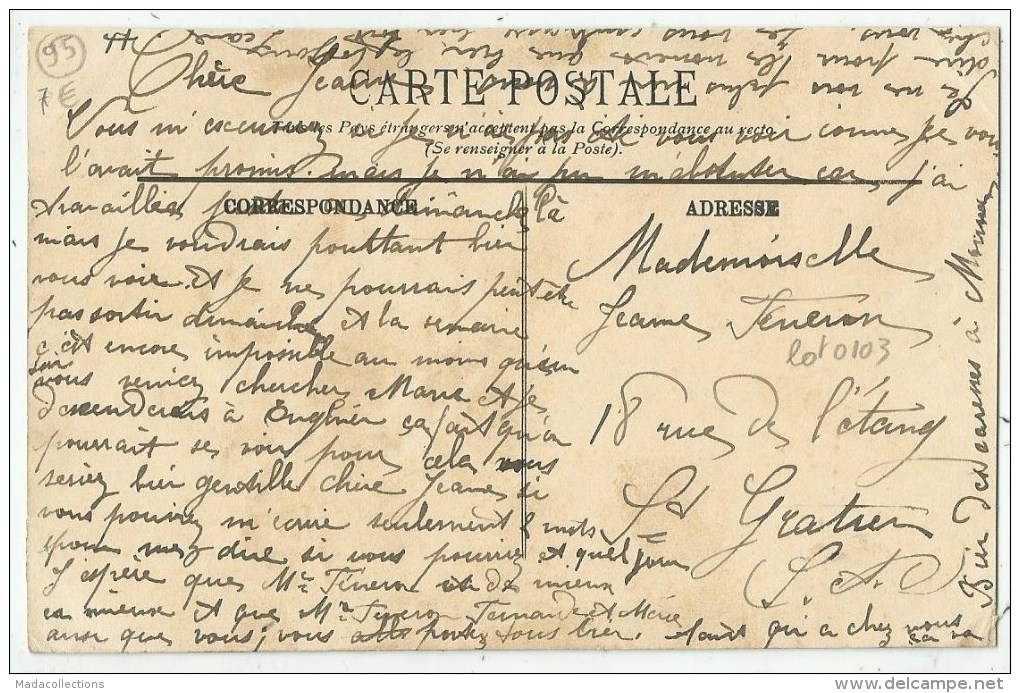 95
7 €
CARTE POSTALE
Tous les Pays étrangers n'acceptent pas la Correspondance au recto
(Se renseigner à la Poste).
CORRESPONDANCE
ADRESSE
Chère Jeanne
Vous m'escuserez Je n'ai pas été vous voir comme Je vous
l'avait promis. mais Je n'ai pu m'absenter car j'ai
travaillée dimanche là
mais Je voudrais pourttant bien
vous voir. Et Je ne pourrais peut etre
pas sortir dimanche et a la semaine
c'est encore impossible au moins qu'un
vous veniez chercher Marie et je
descenderais à Enghien ça fait qu'on
pourrait se voir pour cela vous
seriez bien gentille chère Jeanne si
vous pouviez m'écrire seulement 2 mots
pour me dire si vous pourriez et quel jour
J'espère que Mr Féneron de mieux
en mieux et que Mme Féneron Fernande et
ainsi que vous; vous portez tous bien.
qu'a chez nous
sa va
Bien des caresses à
Je ne vois plus
dire pour
chez vous.
Je vous
Jeanne
Mademoiselle
Jeanne Féneron
18 rue de l'étang
St Gratien
S. et O
lot 0103
Madacollections
www.delcampe.net